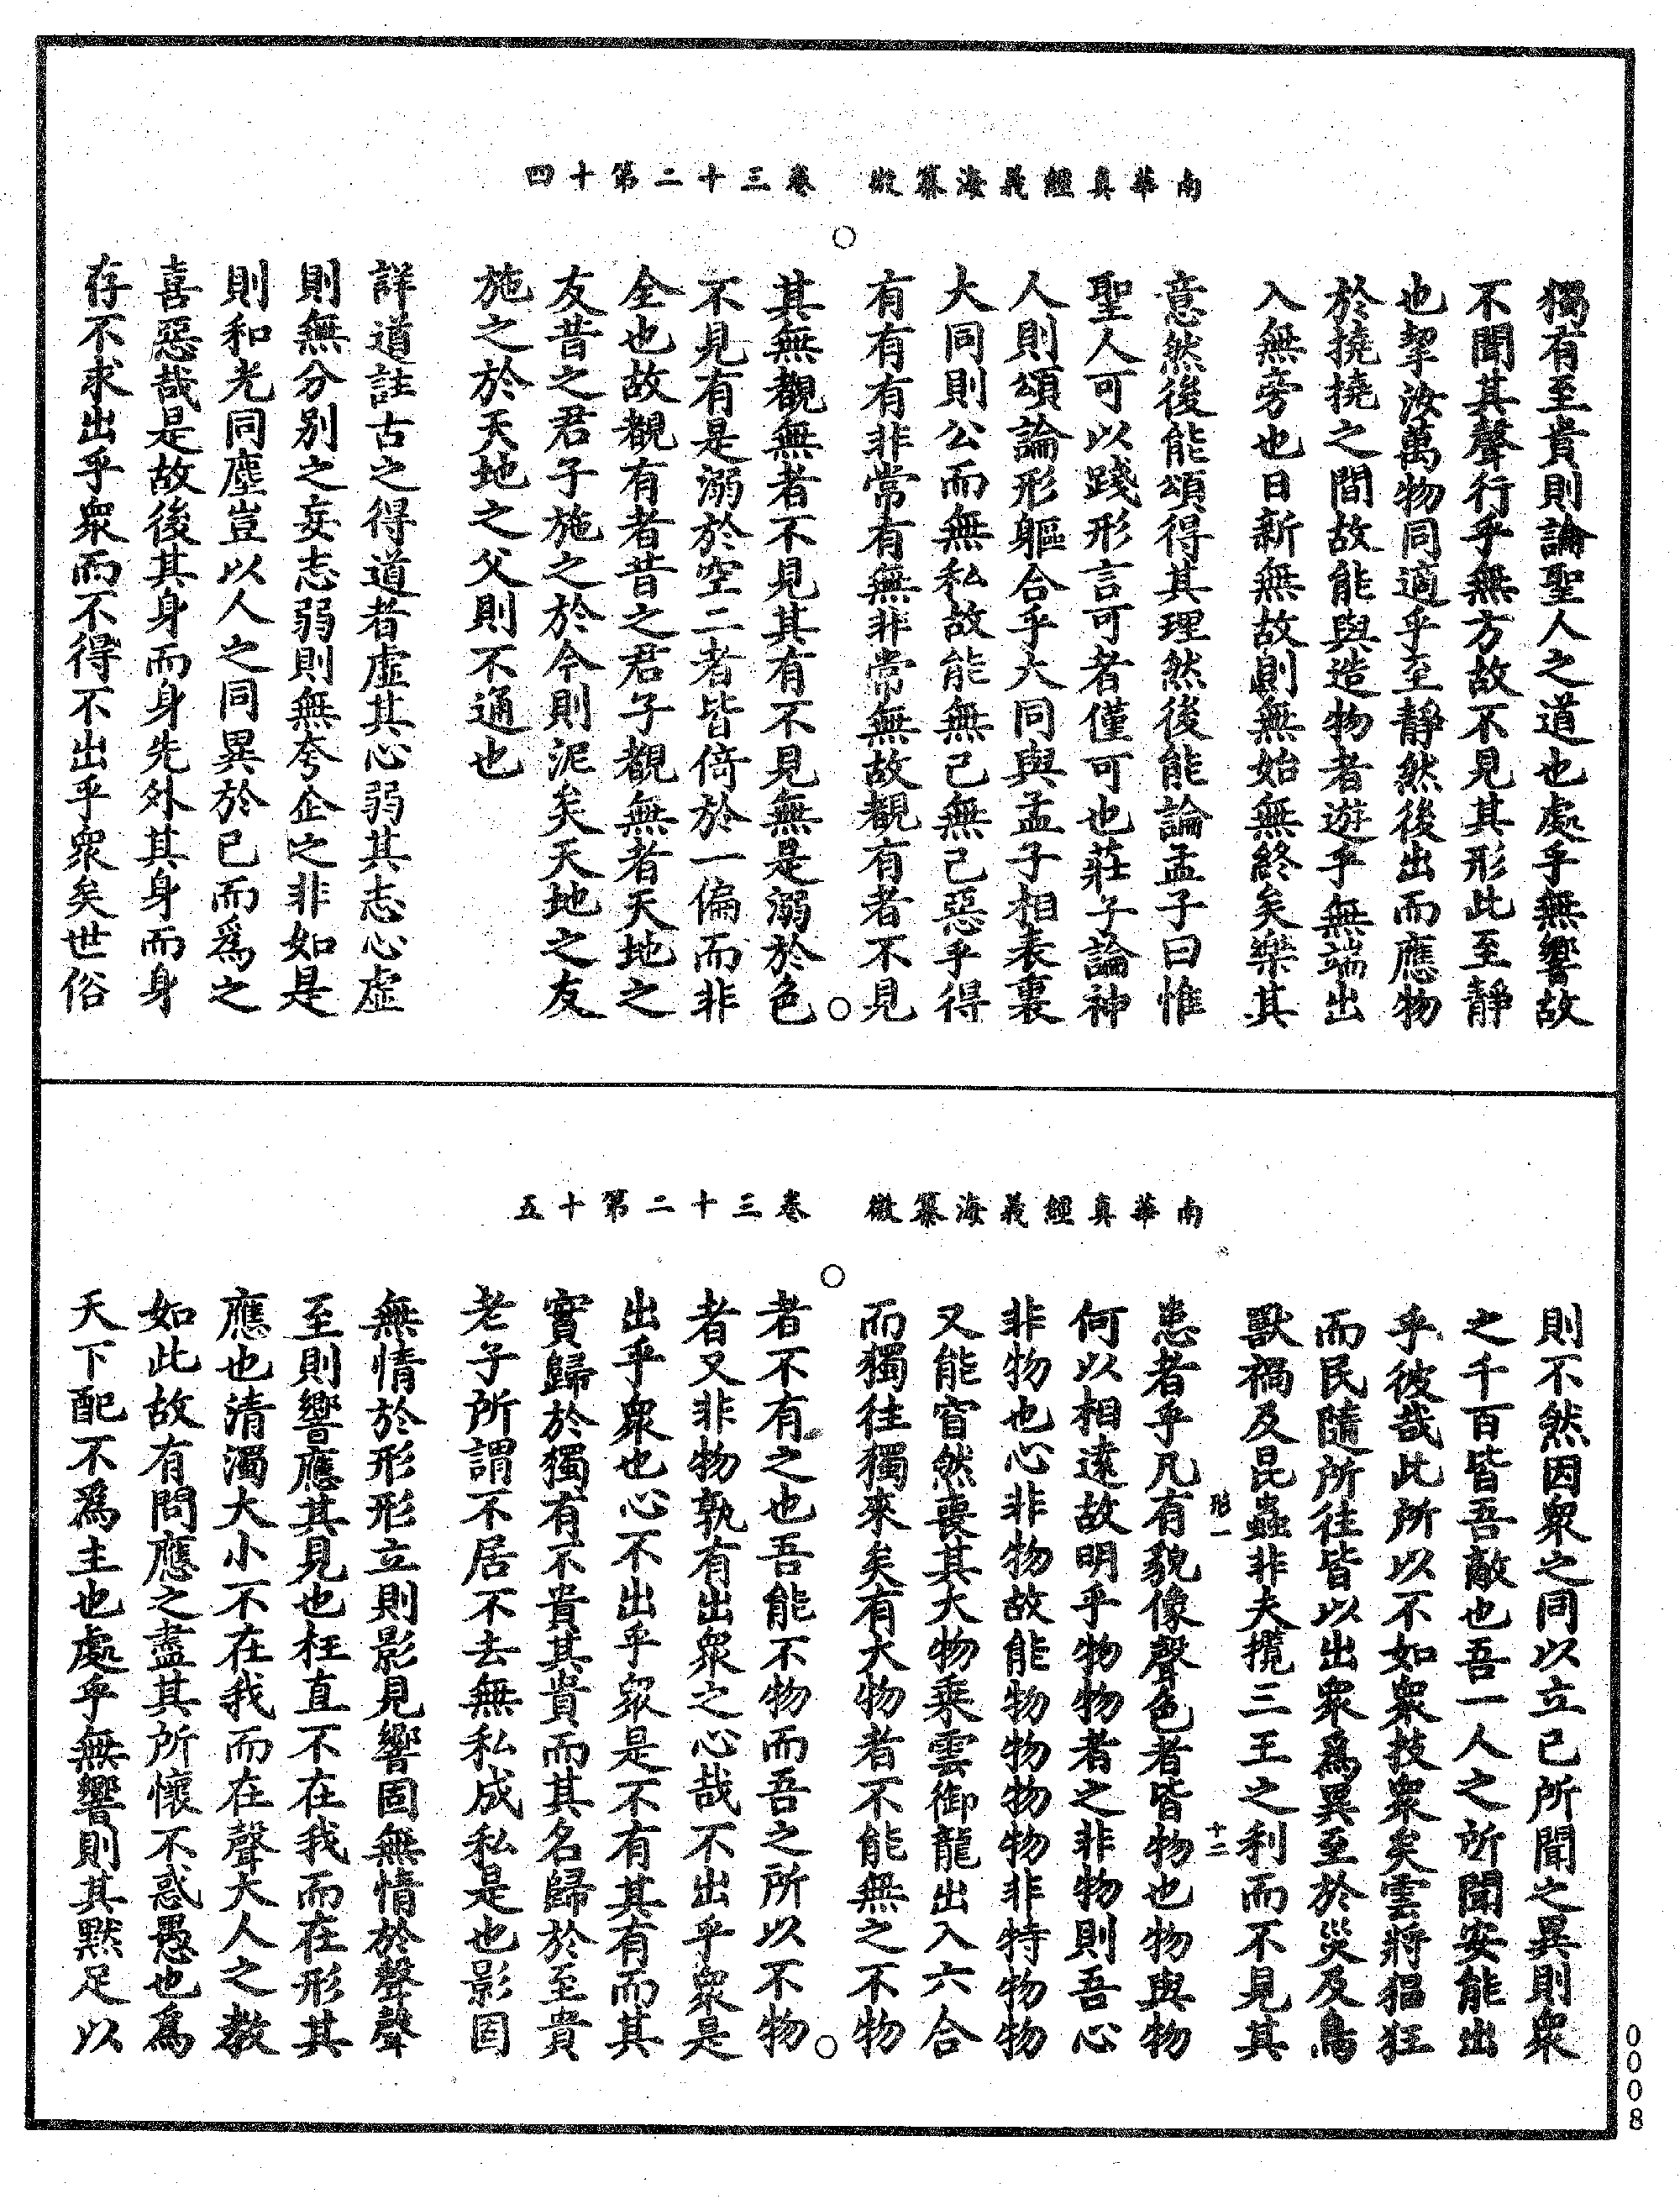 南華真經義海纂微　卷三十二第十四
獨有至貴則論聖人之道也處乎無響故
不聞其聲行乎無方故不見其形此至靜
也挈汝萬物同適乎至靜然後出而應物
於撓撓之間故能與造物者遊乎無端出
入無旁也日新無故則無始無終矣樂其
意然後能頌得其理然後能論孟子曰惟
聖人可以踐形言可者僅可也莊子論神
人則頌論形軀合乎大同與孟子相表裏
大同則公而無私故能無己無己惡乎得
有有有非常有無非常無故覩有者不見
其無覩無者不見其有不見無是溺於色
不見有是溺於空二者皆倚於一偏而非
全也故覩有者昔之君子覩無者天地之
友昔之君子施之於今則泥矣天地之友
施之於天地之父則不通也
詳道註古之得道者虛其心弱其志心虛
則無分别之妄志弱則無夸企之非如是
則和光同塵豈以人之同異於已而為之
喜惡哉是故後其身而身先外其身而身
存不求出乎衆而不得不出乎衆矣世俗
南華真經義海纂微　卷三十二第十五
則不然因衆之同以立已所聞之異則衆
之千百皆吾敵也吾一人之所聞安能出
乎彼哉此所以不如衆技衆矣雲將猖狂
而民隨所往皆以出衆為異至於災及鳥
獸禍及昆蟲非夫攬三王之利而不見其
形一　十二
患者乎凡有貌像聲色者皆物也物與物
何以相遠故明乎物物者之非物則吾心
非物也心非物故能物物物物非特物物
又能窅然喪其大物乘雲御龍出入六合
而獨往獨來矣有大物者不能無之不物
者不有之也吾能不物而吾之所以不物
者又非物孰有出衆之心哉不出乎衆是
出乎衆也心不出乎衆是不有其有而其
實歸於獨有不貴其貴而其名歸於至貴
老子所謂不居不去無私成私是也影固
無情於形形立則影見響固無情於聲聲
至則響應其見也枉直不在我而在形其
應也清濁大小不在我而在聲大人之教
如此故有問應之盡其所懷不惑愚也為
天下配不為主也處乎無響則其默足以
0008